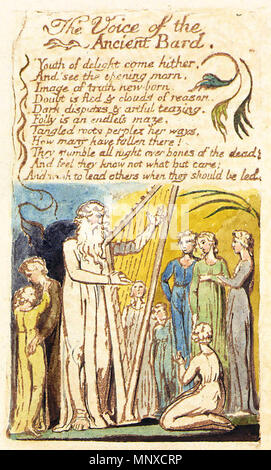 The Voice of the
Ancient Bard.
Youth of delight come hither,
And see the opening morn,
Image of truth new-born
Doubt is fled & clouds of reason.
Dark disputes & artful teazing.
Folly is an endless maze,
Tangled roots perplex her ways,
How many have fallen there!
They stumble all night over bones of the dead;
And feel they know not what but care;
And wish to lead others when they should be led.
alamy
Image ID: MNXCRP
www.alamy.com